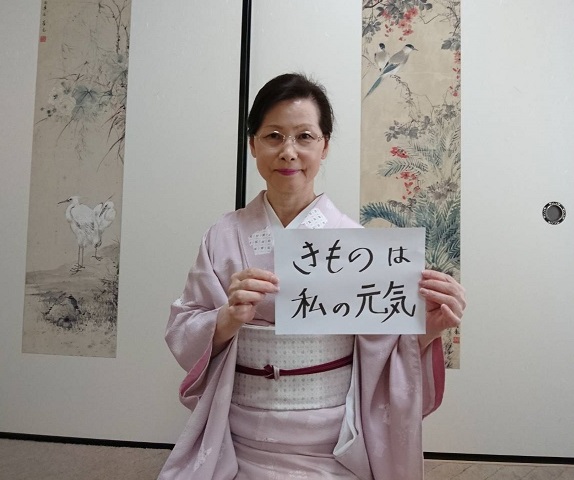 きものは
私の元気